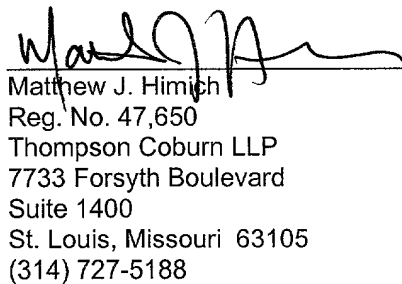 Matthew J. Himich
Reg. No. 47,650
Thompson Coburn LLP
7733 Forsyth Boulevard
Suite 1400
St. Louis, Missouri 63105
(314) 727-5188